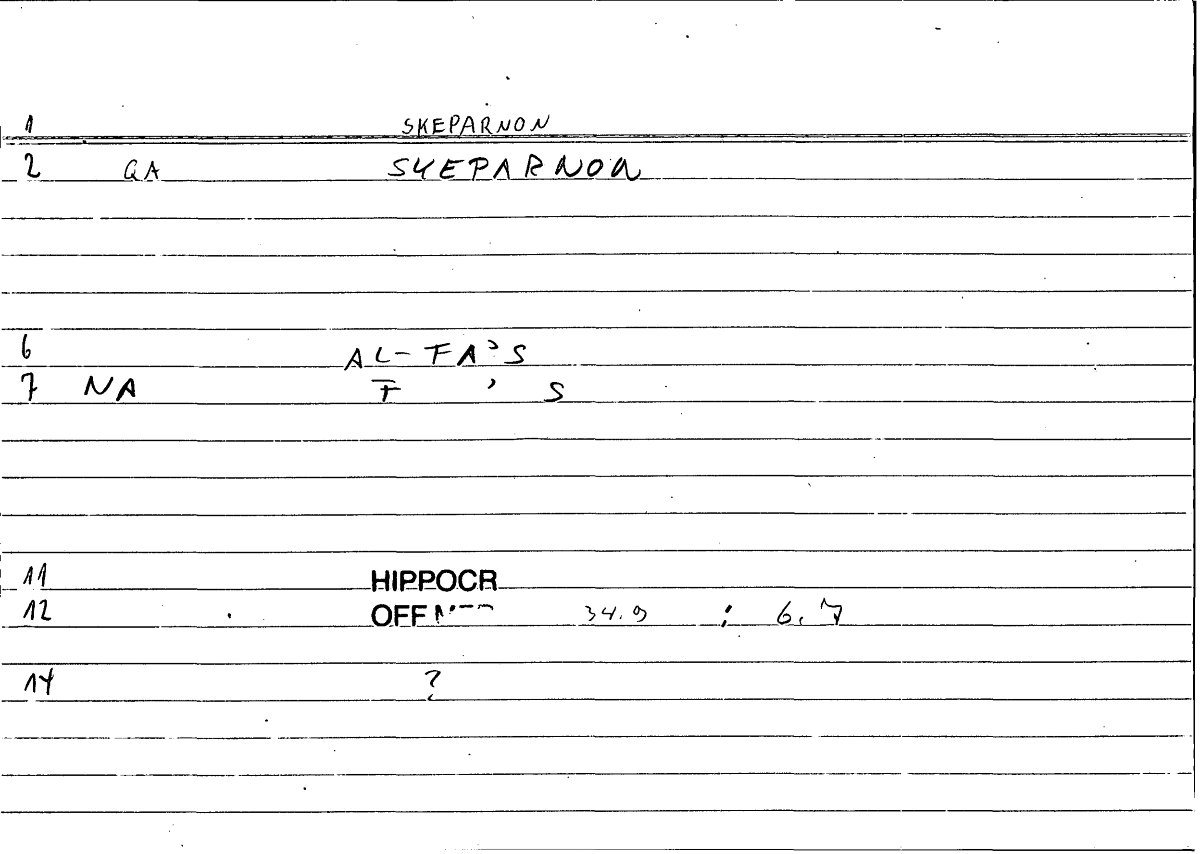 1 SKEPARNON
2 GA SKEPARNON
6 AL-FA'S
7 NA F ' S
11 HIPPOCR
12 OFF 34.9 : 6.7
14 ?